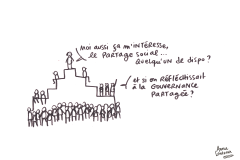 MOI AUSSI ÇA M'INTÉRESSE,
LE PARTAGE SOCIAL...
QUELQU'UN DE DISPO ?
ET SI ON RÉFLÉCHISSAIT
À LA GOUVERNANCE
PARTAGÉE ?